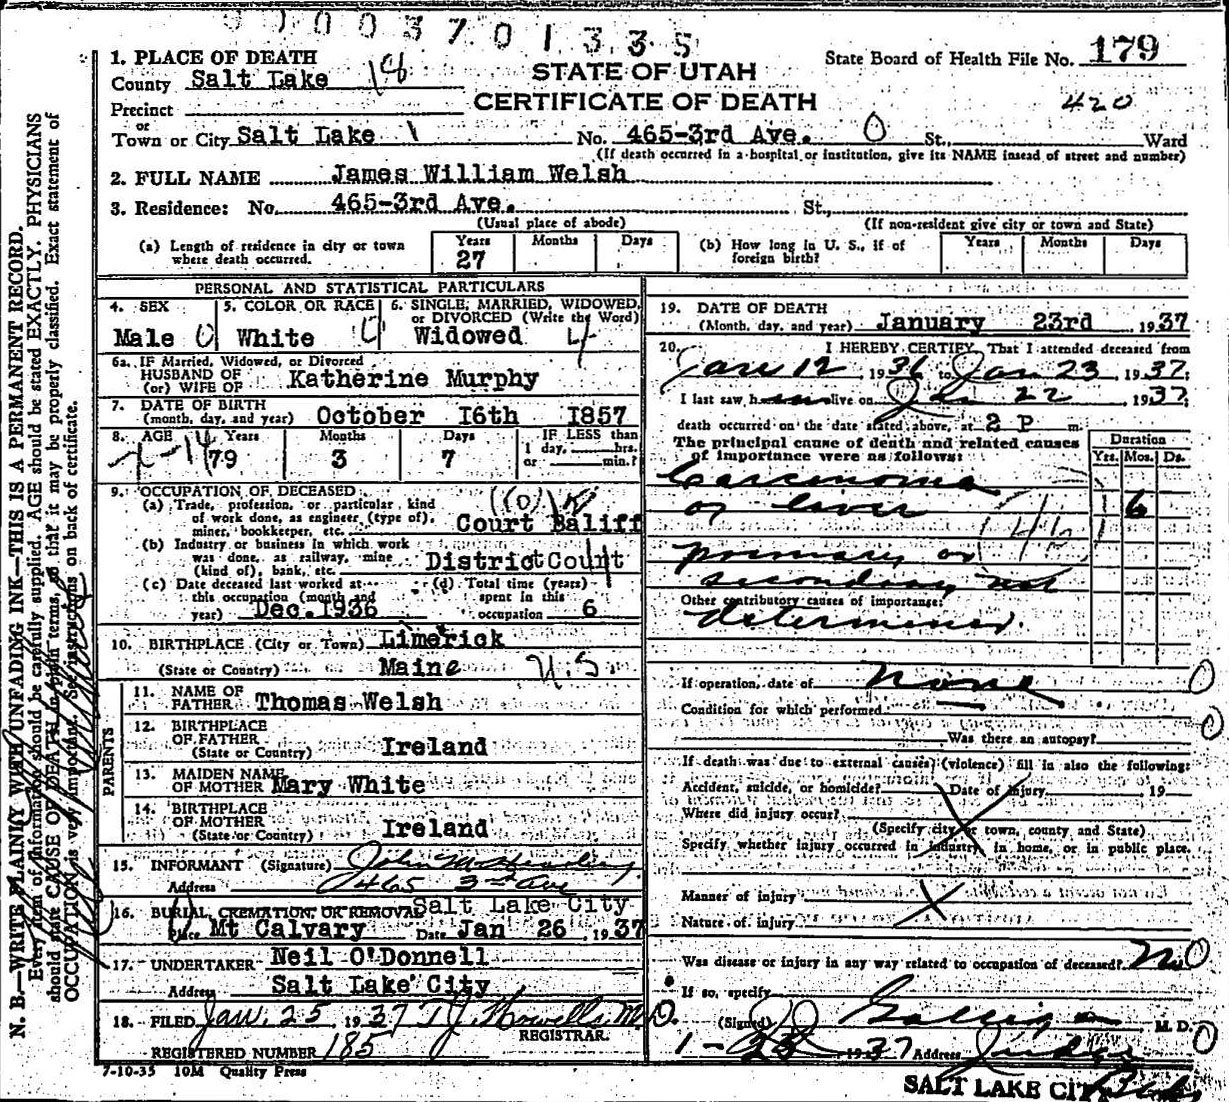 0 0 0 3 7 0 1 3 3 5
1. PLACE OF DEATH
County Salt Lake 18
STATE OF UTAH
State Board of Health File No. 179
CERTIFICATE OF DEATH
420
Precinct
or
Town or City Salt Lake 1 No. 465-3rd Ave. 0 St., Ward
(If death occurred in a hospital or institution, give its NAME insead of street and number)
2. FULL NAME James William Welsh
3. Residence: No. 465-3rd Ave. St.,
(Usual place of abode) (If non-resident give city or town and State)
(a) Length of residence in city or town where death occurred. Years 27 Months Days
(b) How long in U. S., if of foreign birth? Years Months Days
PERSONAL AND STATISTICAL PARTICULARS
4. SEX
Male 0
5. COLOR OR RACE
White
6. SINGLE, MARRIED, WIDOWED,
or DIVORCED (Write the Word)
Widowed 4
6a. IF Married, Widowed, or Divorced
HUSBAND OF
(or) WIFE OF Katherine Murphy
7. DATE OF BIRTH
(month, day, and year) October I6th I857
8. AGE Years Months Days IF LESS than
79 3 7 1 day, hrs.
or min.?
9. OCCUPATION OF DECEASED
(a) Trade, profession, or particular kind
of work done, as engineer (type of),
miner, bookkeeper, etc. Court Baliff
(b) Industry or business in which work
was done, as railway, mine
(kind of), bank, etc. District Court
(c) Date deceased last worked at
this occupation (month and
year) Dec. 1936
(d) Total time (years)
spent in this
occupation 6
10. BIRTHPLACE (City or Town) Limerick
(State or Country) Maine U.S.
PARENTS
11. NAME OF
FATHER Thomas Welsh
12. BIRTHPLACE
OF FATHER
(State or Country) Ireland
13. MAIDEN NAME
OF MOTHER Mary White
14. BIRTHPLACE
OF MOTHER
(State or Country) Ireland
15. INFORMANT (Signature) John M
Address 465 3rd Ave
Salt Lake City
16. BURIAL, CREMATION, OR REMOVAL
Place Mt Calvary Date Jan 26, 1937
17. UNDERTAKER Neil O'Donnell
Address Salt Lake City
18. FILED Jan. 25 1937 T.J. Howells M.D.
REGISTRAR.
REGISTERED NUMBER 185
7-10-35 10M Quality Press
19. DATE OF DEATH
(Month, day, and year) January 23rd , 1937
20. I HEREBY CERTIFY, That I attended deceased from
Jan 12, 1936 to Jan 23, 1937.
I last saw him alive on Jan 22 1937;
death occurred on the date stated above, at 2 P m.
The principal cause of death and related causes
of importance were as follows:
Duration
Yrs. Mos. Ds.
Carcinoma
of liver 6
primary or
secondary not
Other contributory causes of importance:
determined.
If operation, date of None 0
Condition for which performed 0
Was there an autopsy?
If death was due to external causes (violence) fill in also the following:
Accident, suicide, or homicide? Date of injury 19
Where did injury occur?
(Specify city or town, county and State)
Specify whether injury occurred in industry, in home, or in public place.
Manner of injury
Nature of injury
Was disease or injury in any way related to occupation of deceased? No
If so, specify
(Signed) M. D.
1-23 1937 Address Judge
SALT LAKE CITY
N. B.—WRITE PLAINLY WITH UNFADING INK—THIS IS A PERMANENT RECORD.
Every item of information should be carefully supplied. AGE should be stated EXACTLY. PHYSICIANS
should state CAUSE OF DEATH in plain terms, so that it may be properly classified. Exact statement of
OCCUPATION is very important. See instructions on back of certificate.